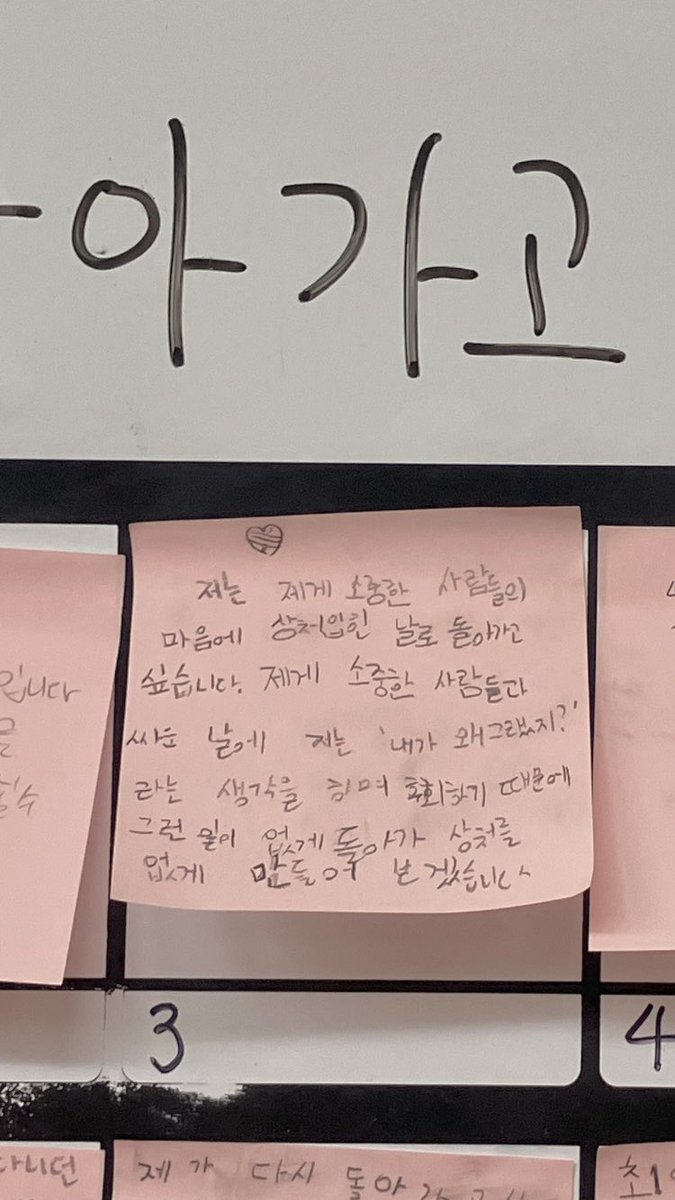 아가고
저는 제게 소중한 사람들의
마음에 상처입힌 날로 돌아가고
싶습니다. 제게 소중한 사람들과
싸운 날에 저는 '내가 왜그랬지?'
라는 생각을 하며 후회하기 때문에
그런 일이 없게 돌아가 상처를
없게 만들어 보겠습니다
입니다
를
수
3
4
다니던
제가 다시 돌아